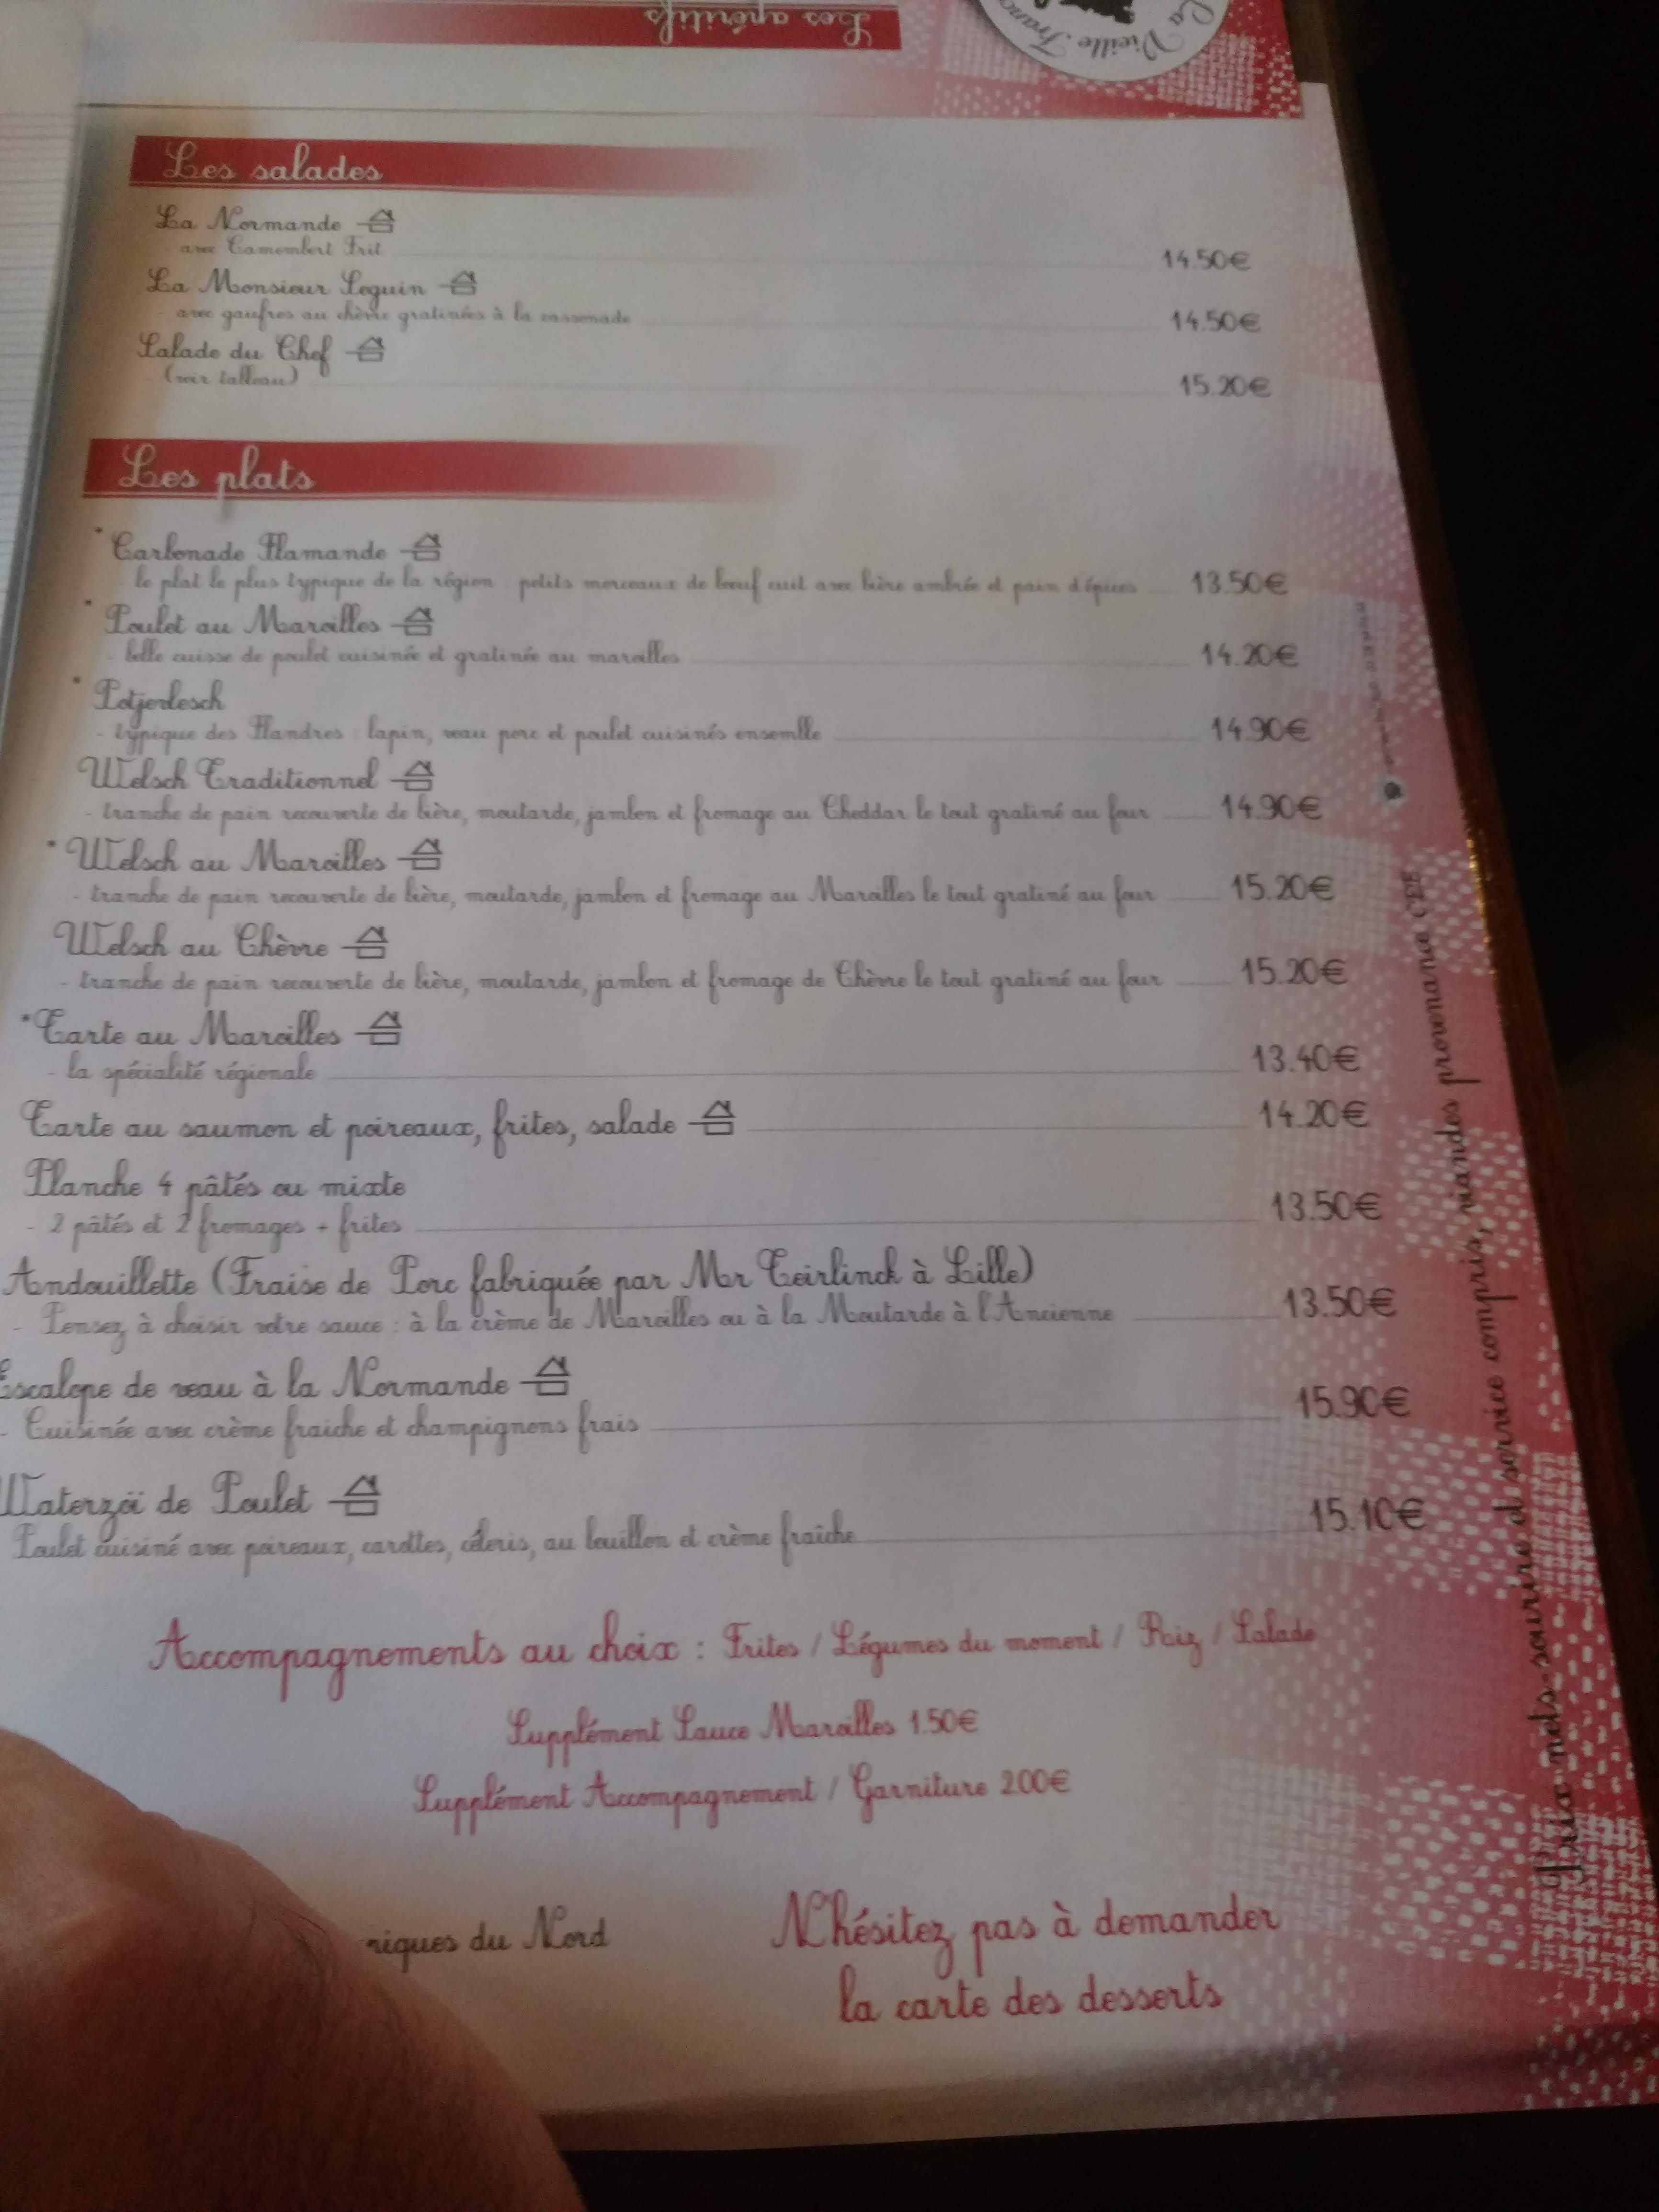 Les apéritifs
La Vieille Franc
Les salades
La Normande
avec Camembert Frit 14.50€
La Monsieur Seguin
- avec gaufres au chèvre gratinées à la cassonade 14.50€
Salade du Chef
(voir tableau) 15.20€
Les plats
* Carbonade Flamande
le plat le plus typique de la région petits morceaux de bœuf cuit avec bière ambrée et pain d'épices 13.50€
* Poulet au Maroilles
- belle cuisse de poulet cuisinée et gratinée au maroilles 14.20€
* Potjevlesch
- typique des Flandres : lapin, veau porc et poulet cuisinés ensemble 14.90€
Welsch Traditionnel
- tranche de pain recouverte de bière, moutarde, jambon et fromage au Cheddar le tout gratiné au four 14.90€
* Welsch au Maroilles
- tranche de pain recouverte de bière, moutarde, jambon et fromage au Maroilles le tout gratiné au four 15.20€
Welsch au Chèvre
- tranche de pain recouverte de bière, moutarde, jambon et fromage de Chèvre le tout gratiné au four 15.20€
*Tarte au Maroilles
- la spécialité régionale 13.40€
Tarte au saumon et poireaux, frites, salade 14.20€
Planche 4 pâtés ou mixte
- 2 pâtés et 2 fromages + frites 13.50€
Andouillette (Fraise de Porc fabriquée par Mr Teirlinck à Lille)
- Pensez à choisir votre sauce : à la crème de Maroilles ou à la Moutarde à l'Ancienne 13.50€
Escalope de veau à la Normande
- Cuisinée avec crème fraiche et champignons frais 15.90€
Waterzoï de Poulet
Poulet cuisiné avec poireaux, carottes, céleris, au bouillon et crème fraîche 15.10€
Accompagnements au choix : Frites / Légumes du moment / Raiz / Salade
Supplément Sauce Maroilles 1.50€
Supplément Accompagnement / Garniture 2.00€
niques du Nord
N'hésitez pas à demander
la carte des desserts
Prix nets, sourire et service compris, viandes provenance CEE